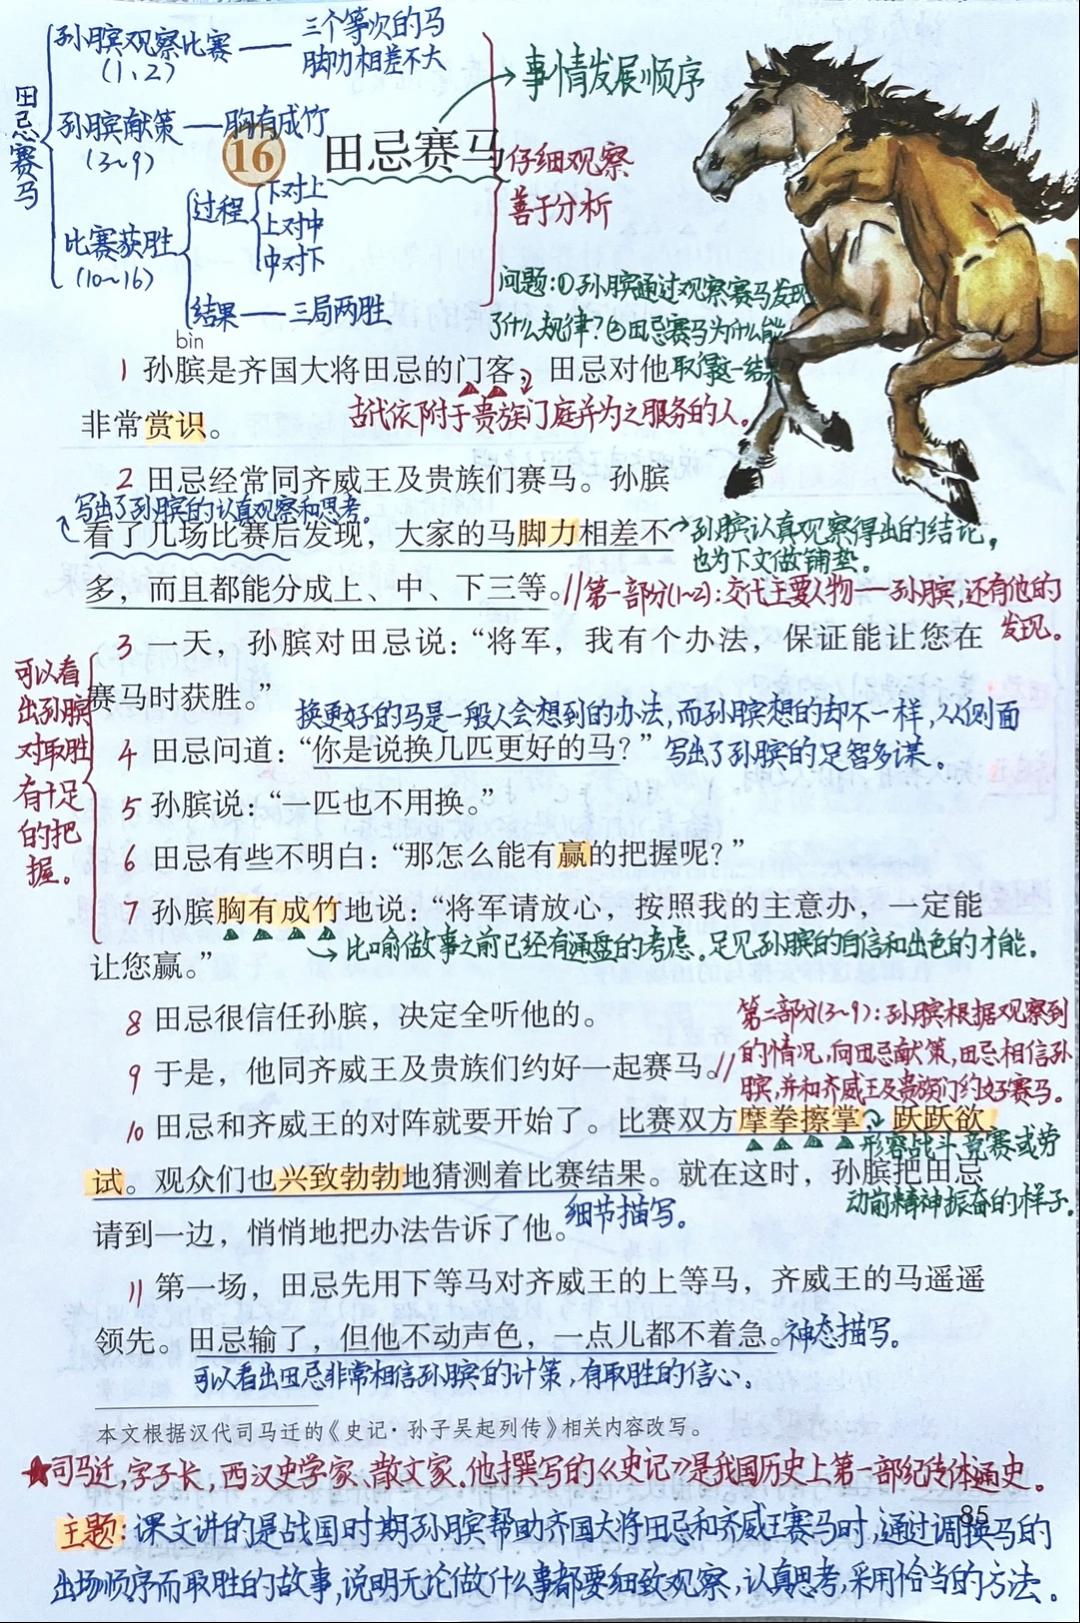 田忌赛马
孙膑观察比赛——三个等次的马
(1、2) 脚力相差不大
孙膑献策——胸有成竹
(3~9)
比赛获胜
(10~16)
过程
下对上
上对中
中对下
结果——三局两胜
仔细观察
善于分析
事情发展顺序
16 田忌赛马
问题:①孙膑通过观察赛马发现
了什么规律?②田忌赛马为什么能
取得这一结果
bìn
1 孙膑是齐国大将田忌的门客，田忌对他
古代依附于贵族门庭并为之服务的人。
非常赏识。
2 田忌经常同齐威王及贵族们赛马。孙膑
写出了孙膑的认真观察和思考。
看了几场比赛后发现，大家的马脚力相差不
孙膑认真观察得出的结论，
也为下文做铺垫。
多，而且都能分成上、中、下三等。
//第一部分(1~2):交代主要人物——孙膑,还有他的
发现。
3 一天，孙膑对田忌说：“将军，我有个办法，保证能让您在
赛马时获胜。”
可以看
出孙膑
对取胜
有十足
的把
握。
换更好的马是一般人会想到的办法,而孙膑想的却不一样,从侧面
写出了孙膑的足智多谋。
4 田忌问道：“你是说换几匹更好的马？”
5 孙膑说：“一匹也不用换。”
6 田忌有些不明白：“那怎么能有赢的把握呢？”
7 孙膑胸有成竹地说：“将军请放心，按照我的主意办，一定能
比喻做事之前已经有通盘的考虑。足见孙膑的自信和出色的才能。
让您赢。”
8 田忌很信任孙膑，决定全听他的。
9 于是，他同齐威王及贵族们约好一起赛马。
//第二部分(3~9):孙膑根据观察到
的情况,向田忌献策,田忌相信孙
膑,并和齐威王及贵族们约好赛马。
10 田忌和齐威王的对阵就要开始了。比赛双方摩拳擦掌、跃跃欲
形容战斗、竞赛或劳
动前精神振奋的样子。
试。观众们也兴致勃勃地猜测着比赛结果。就在这时，孙膑把田忌
细节描写。
请到一边，悄悄地把办法告诉了他。
11 第一场，田忌先用下等马对齐威王的上等马，齐威王的马遥遥
领先。田忌输了，但他不动声色，一点儿都不着急。
神态描写。
可以看出田忌非常相信孙膑的计策,有取胜的信心。
本文根据汉代司马迁的《史记·孙子吴起列传》相关内容改写。
★司马迁,字子长,西汉史学家、散文家.他撰写的《史记》是我国历史上第一部纪传体通史。
85
主题:课文讲的是战国时期孙膑帮助齐国大将田忌和齐威王赛马时,通过调换马的
出场顺序而取胜的故事,说明无论做什么事都要细致观察,认真思考,采用恰当的方法。